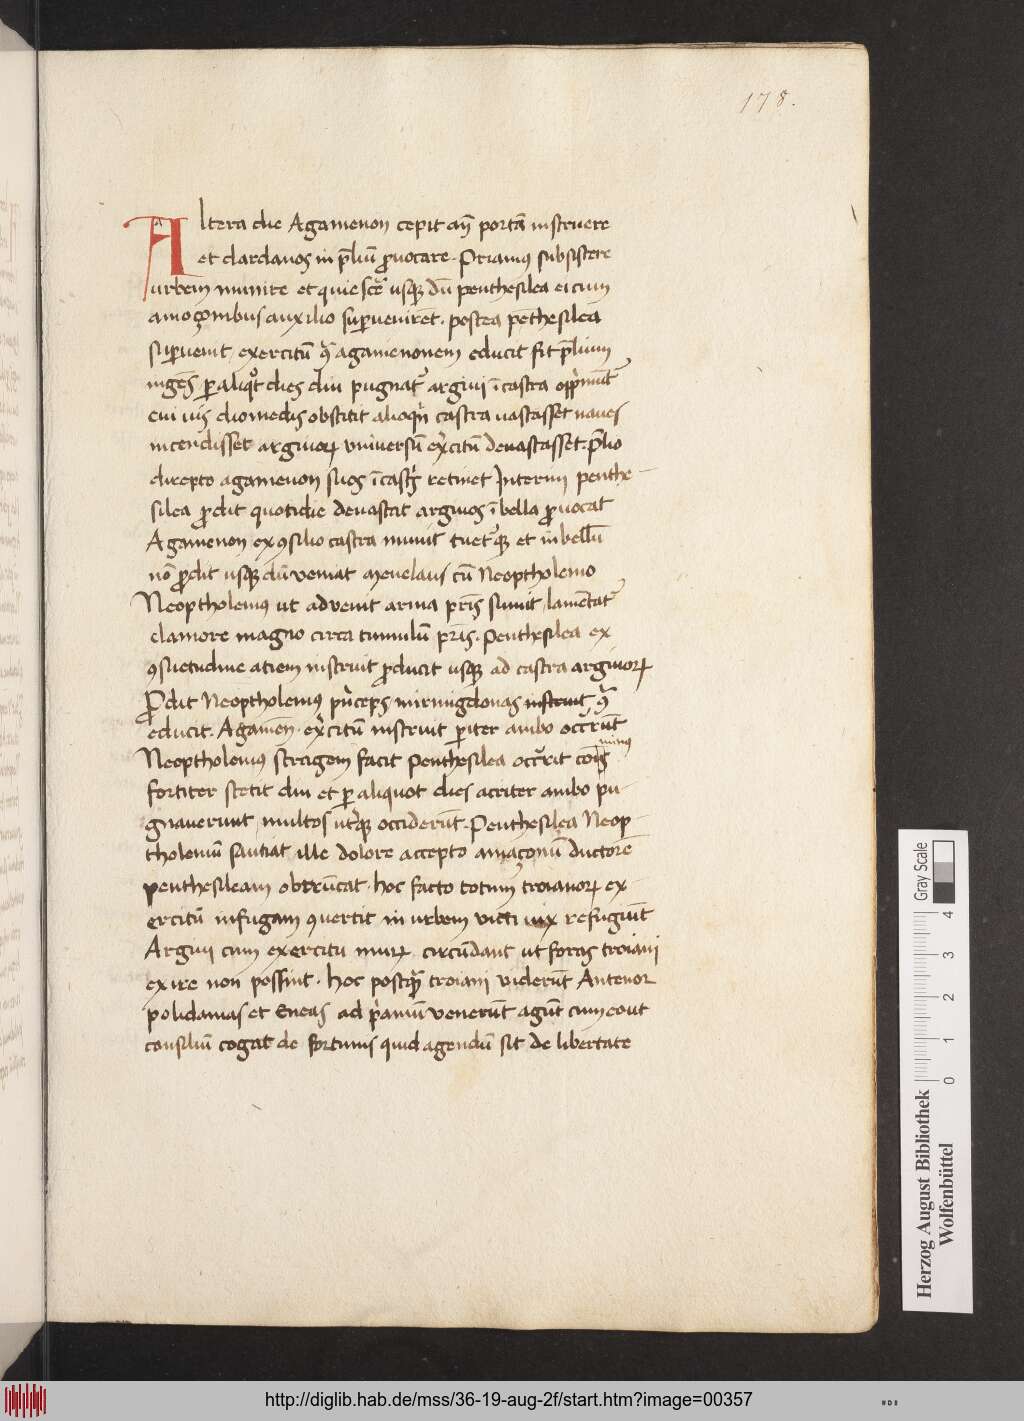 178.
Altera die Agamenon cepit añ portā instruere
et dardanos in p̄liū ꝓuocare. Priamus subsistere
urbem munire et quiescere usqꝫ dū penthesilea ei cum
amoçonibus auxilio suꝑuenirēt. postea pēthesilea
suꝑuenit, exercitū ꝯtra agamenonem educit fit p̄lium
ingēs ꝑ aliqͦt dies diu pugnatᷣ argiui ī castra opprimūtᷣ
cui uis diomedis obstitit alioqn̄ castra uastasset naues
incendisset argiuoꝝ vniuersū exercitū deuastasset. p̄lio
direpto agamenon suos ī castris retinet Interim penthe-
silea ꝓdit quotidie deuastat argiuos ī bella ꝓuocat
Agamenon ex ꝯsilio castra munit tuetᷣqꝫ et in bellū
nō ꝓdit usqꝫ dū veniat Menelaus cū Neoptholemo
Neoptholemus ut advenit arma pr̄is sumit, lamētatᷣ
clamore magno circa tumulū pr̄is. Penthesilea ex
ꝯsuetudine atiem instruit ꝓducit usqꝫ ad castra argiuoꝝ
Ꝓdit Neoptholemus princeps mirmigdonas instruit ꝯtra
educit. Agamenō. exercitū instruit ꝑiter ambo occurrūt
Neoptholemus stragem facit Penthesilea occurrit
minus
fortiter stetit diu et ꝑ aliquot dies acriter ambo pu-
gnauerunt, multos utriqꝫ occiderūt. Penthesilea Neop-
tholemū sautiat ille dolore accepto amaçonū ductorē
penthesileam obtrūcat. hoc facto totum troianoꝝ ex
ercitū in fugam ꝯuertit in urbem victi uix refugiūt
Argiui cum exercitu muꝝ circūdant ut foras troiani
exire non possint. hoc postꝗ̄ troiani viderūt Antenor
polidamas et Eneas ad priamū venerūt agūt cum eo ut
consiliū cogat de fortunis quid agendū sit de libertate
Gray Scale
4 3 2 1 0
Herzog August Bibliothek
Wolfenbüttel
http://diglib.hab.de/mss/36-19-aug-2f/start.htm?image=00357